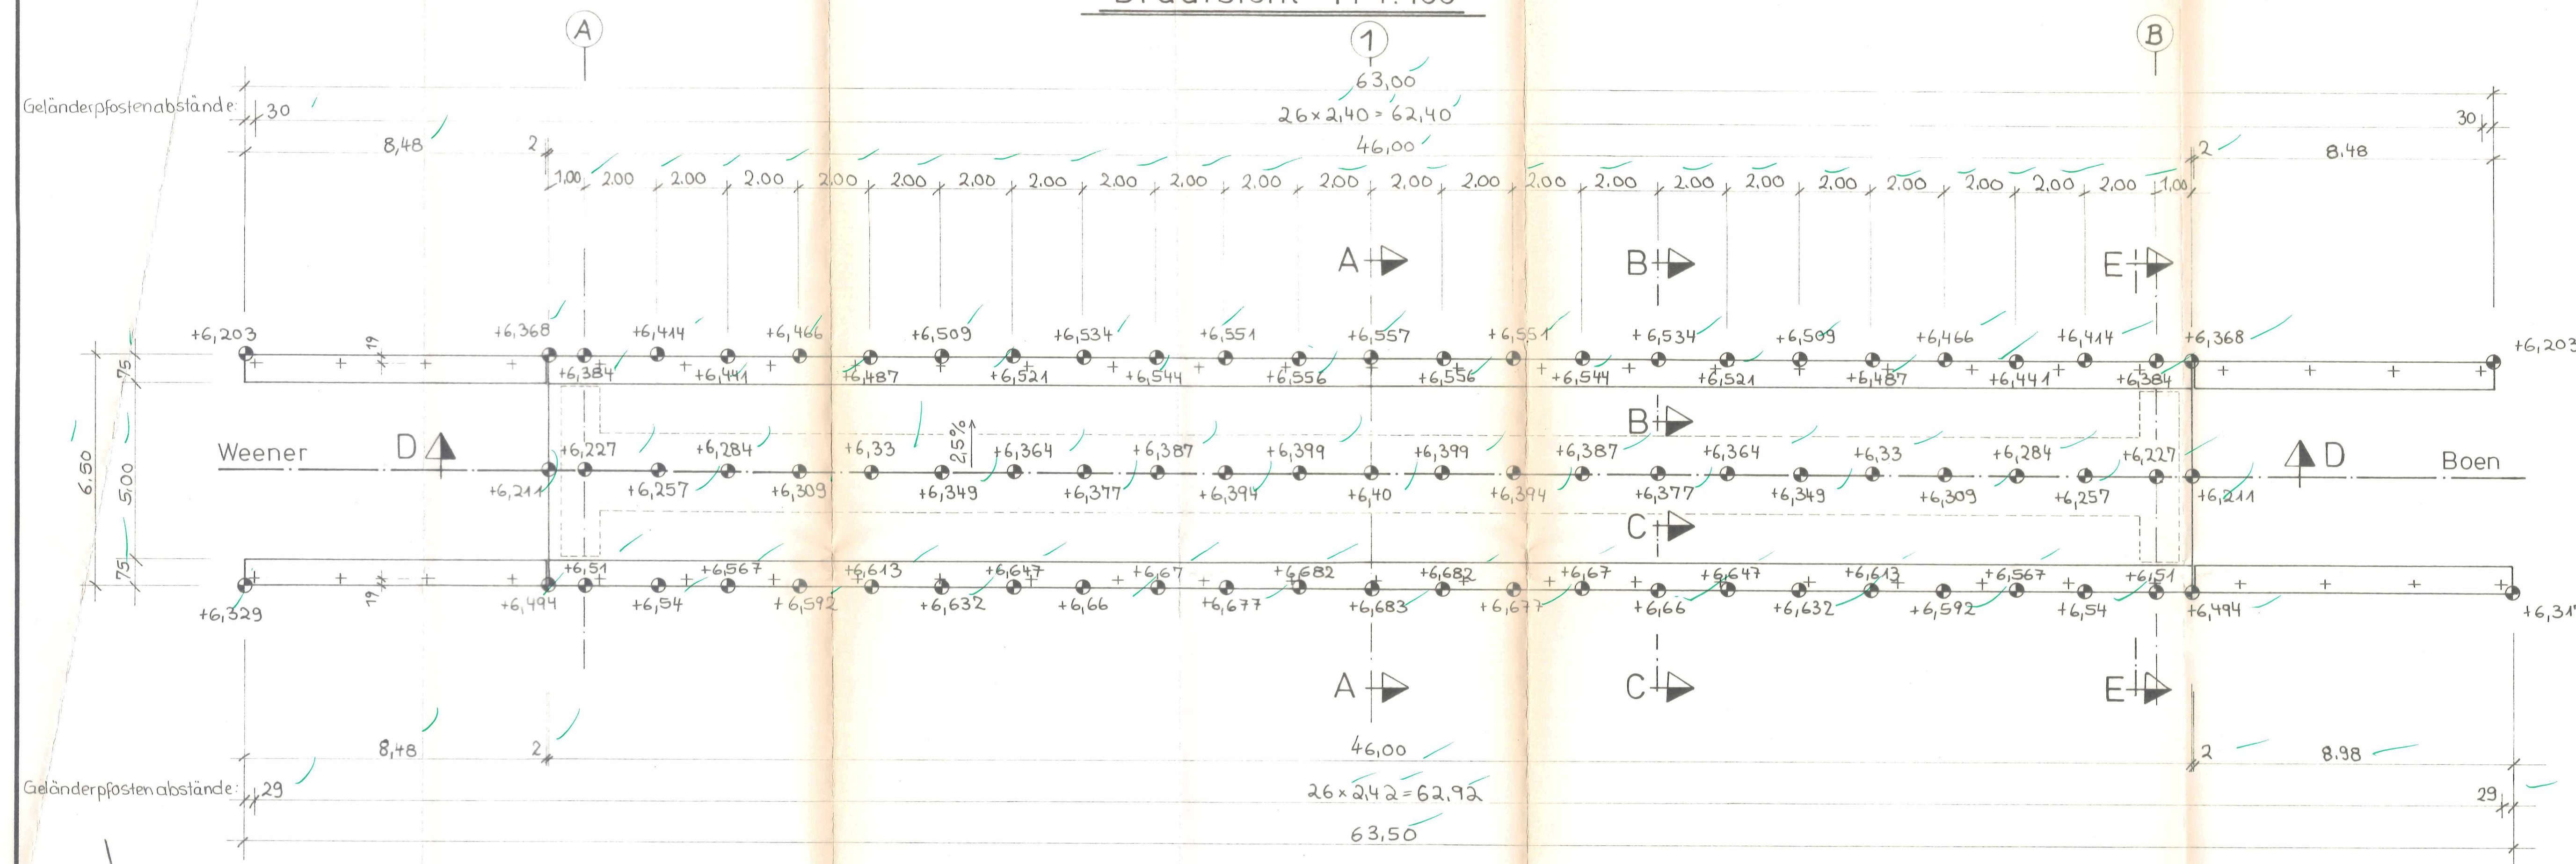 A 1 B
63,00
Geländerpfostenabstände: 30 26 × 2,40 = 62,40 30
8,48 2 46,00 2 8.48
1,00 2.00 2.00 2.00 2.00 2.00 2.00 2.00 2.00 2.00 2.00 2.00 2.00 2.00 2.00 2.00 2.00 2.00 2.00 2.00 2.00 2.00 2.00 1,00
A B E
+6,203 +6,368 +6,414 +6,466 +6,509 +6,534 +6,551 +6,557 +6,551 +6,534 +6,509 +6,466 +6,414 +6,368 +6,203
75 19
+6,384 +6,441 +6,487 +6,521 +6,544 +6,556 +6,556 +6,544 +6,521 +6,487 +6,441 +6,384
B
Weener D +6,227 +6,284 +6,33 2,5% +6,364 +6,387 +6,399 +6,399 +6,387 +6,364 +6,33 +6,284 +6,227 D Boen
6,50 5,00
+6,211 +6,257 +6,309 +6,349 +6,377 +6,394 +6,40 +6,394 +6,377 +6,349 +6,309 +6,257 +6,211
C
75 19
+6,51 +6,567 +6,613 +6,647 +6,67 +6,682 +6,682 +6,67 +6,647 +6,613 +6,567 +6,51
+6,329 +6,494 +6,54 +6,592 +6,632 +6,66 +6,677 +6,683 +6,677 +6,66 +6,632 +6,592 +6,54 +6,494
A C E
8,48 2 46,00 2 8.98
Geländerpfostenabstände: 29 26 × 2,42 = 62,92 29
63,50